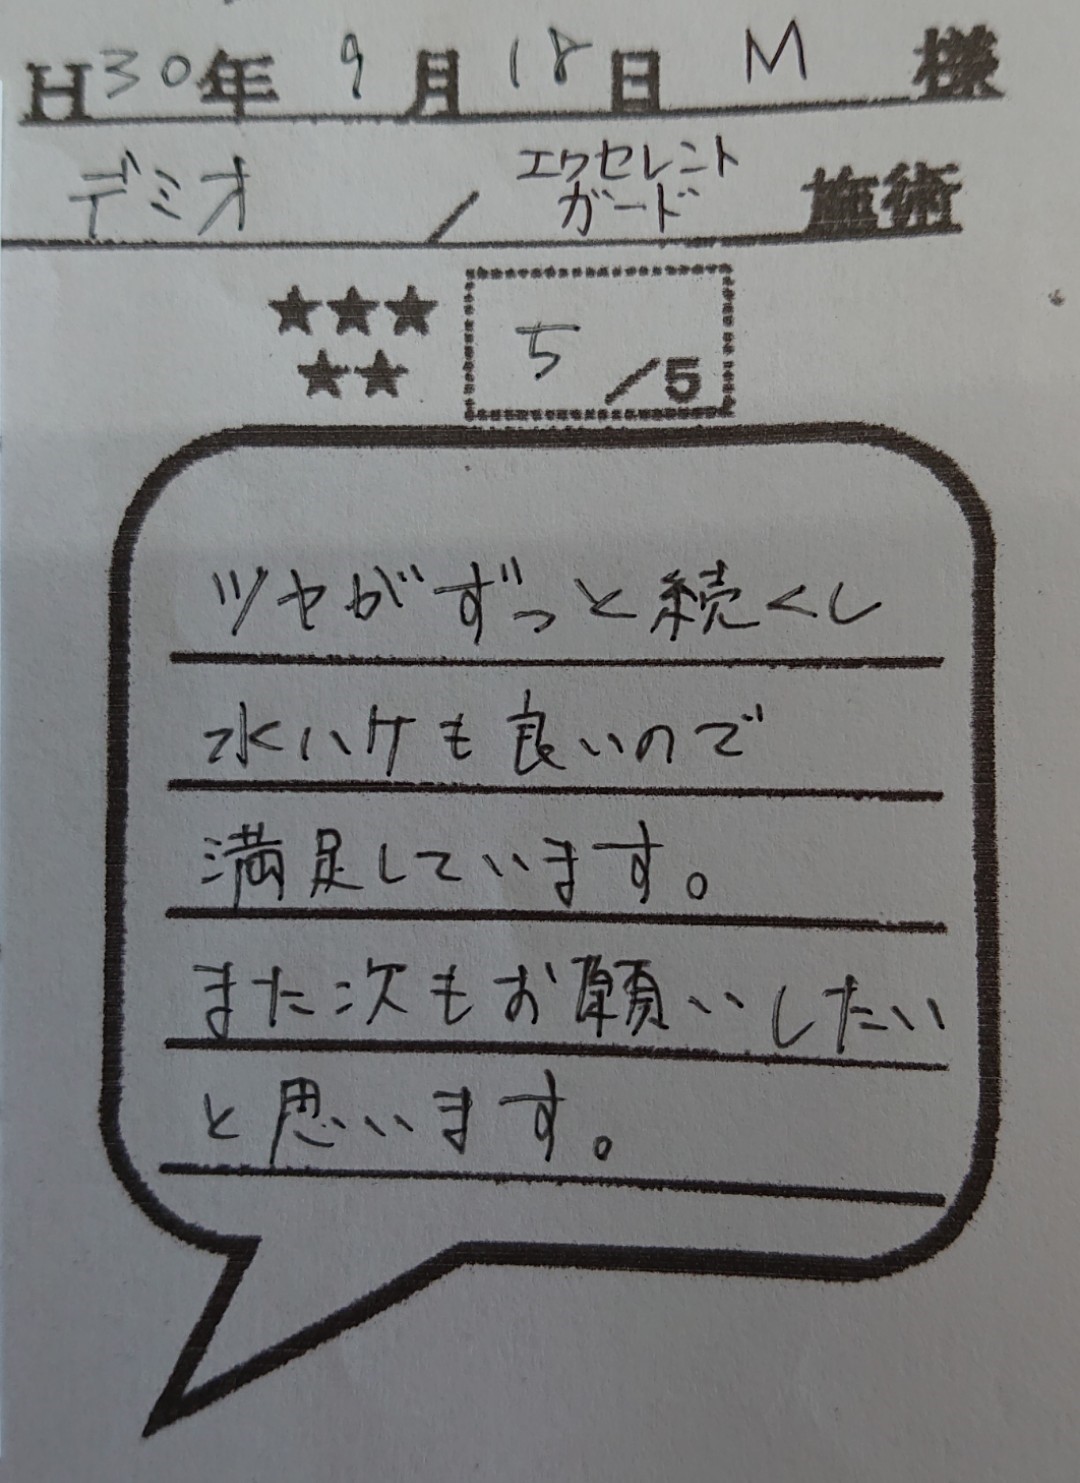 H30年 9月 18日 M 様
デミオ / エクセレントガード 施術
★★★
★★ 5/5
ツヤがずっと続くし
水ハケも良いので
満足しています。
また次もお願いしたい
と思います。